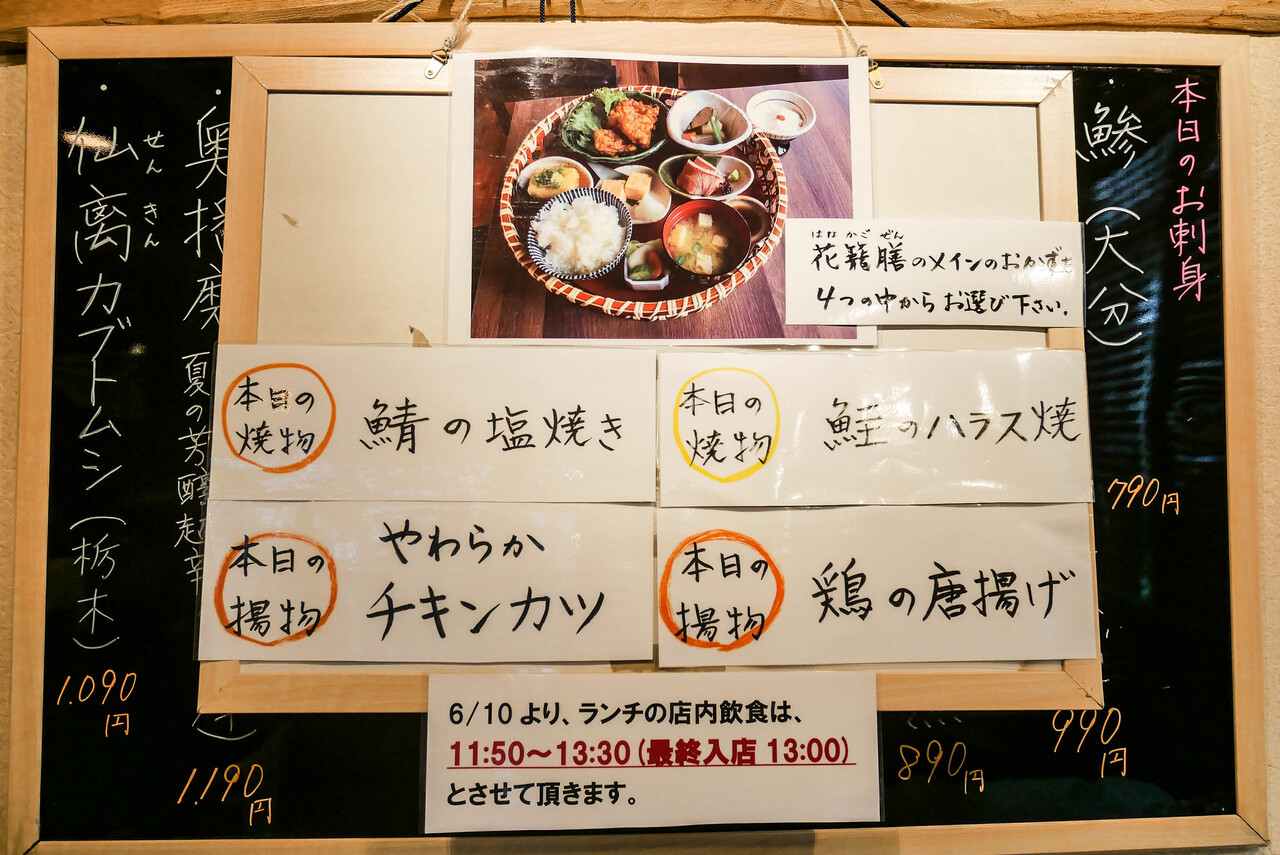 本日のお刺身
790円
鯵(大分)
990円
890円
はなかごぜん
花籠膳のメインのおかずを
4つの中からお選び下さい。
本日の
焼物
鯖の塩焼き
本日の
焼物
鮭のハラス焼
本日の
揚物
やわらか
チキンカツ
本日の
揚物
鶏の唐揚げ
6/10より、ランチの店内飲食は、
11:50～13:30(最終入店 13:00)
とさせて頂きます。
・奥播磨
夏の芳醇超辛
1.190円
せんきん
・仙禽カブトムシ(栃木)
1.090円